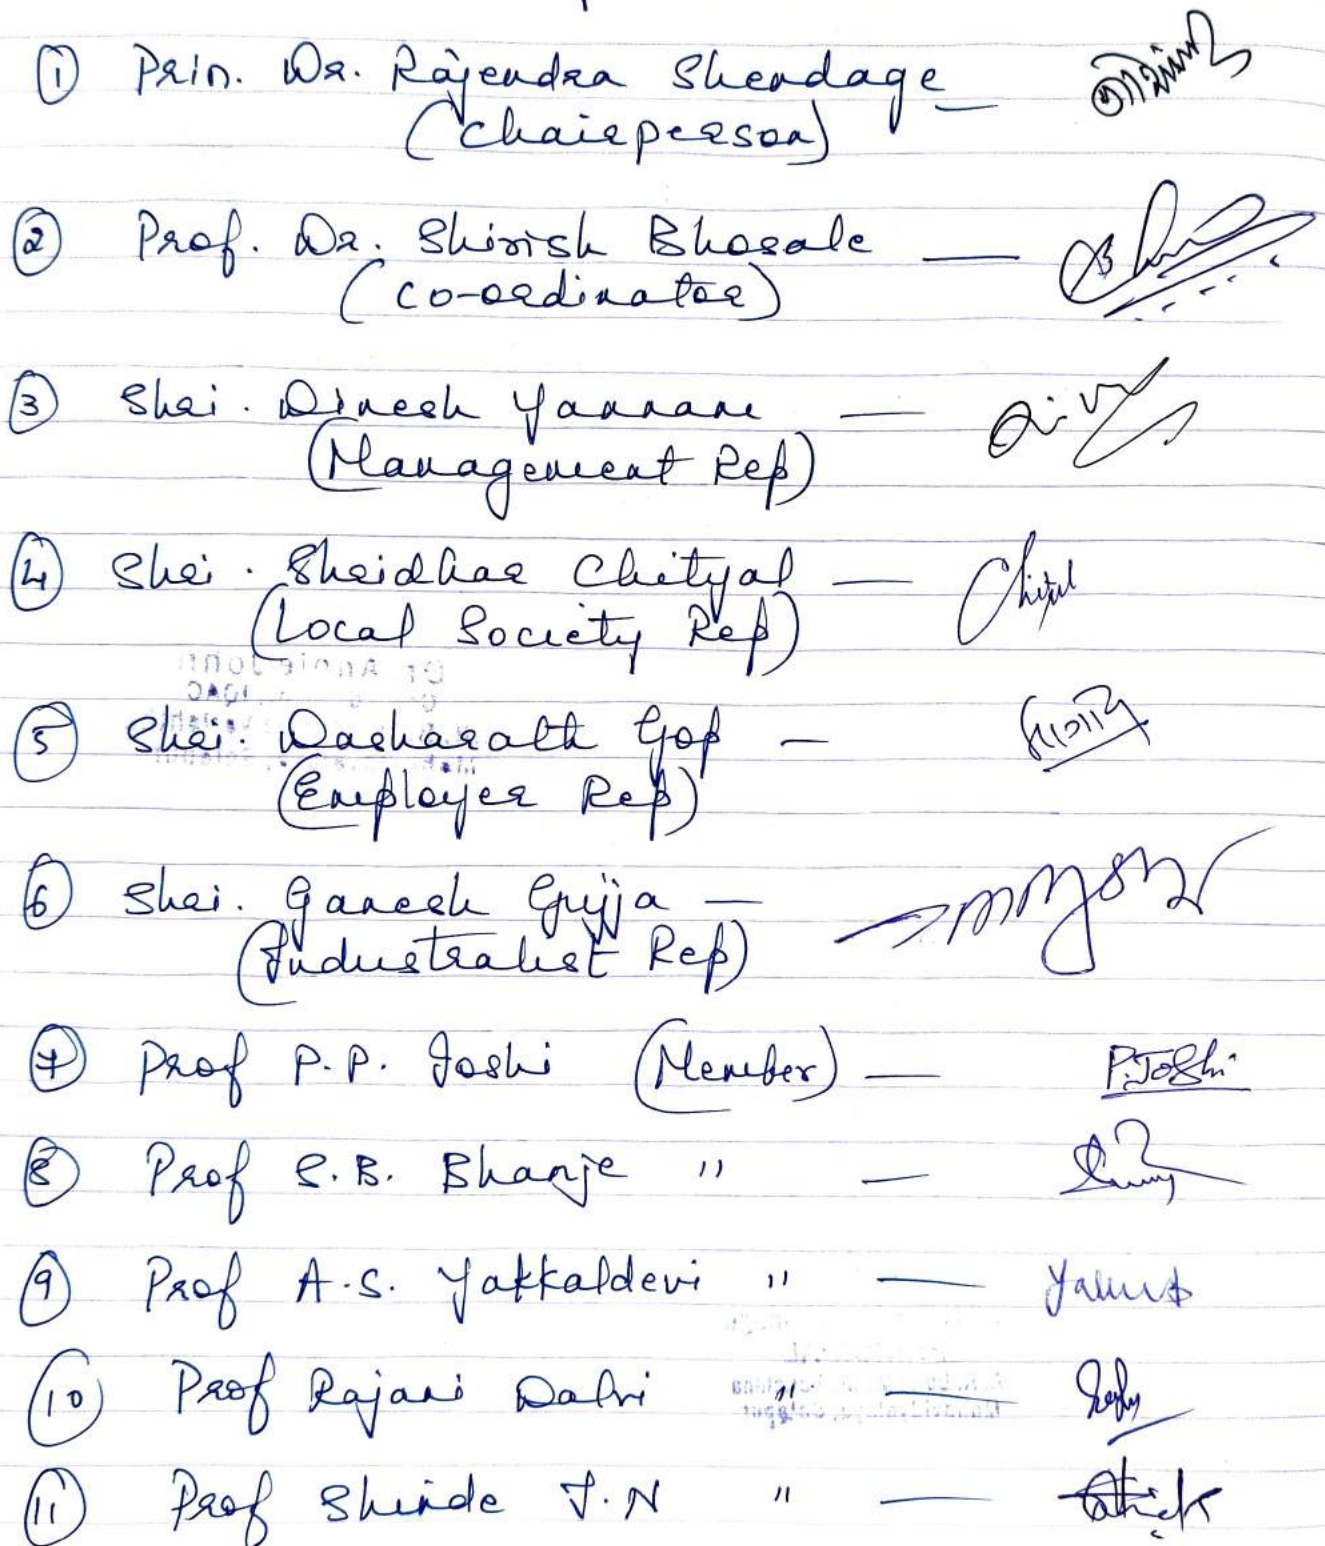 ① Prin. Dr. Rajendra Shendage —
(Chairperson)
② Prof. Dr. Shirish Bhosale —
(Co-ordinator)
③ Shri. Dinesh Yannam —
(Management Rep)
④ Shri. Shridhar Chityal —
(Local Society Rep)
Dr Annie John
IQAC
⑤ Shri. Dasharath Gop —
(Employer Rep)
⑥ Shri. Ganesh Gujja —
(Industralist Rep)
⑦ Prof P.P. Joshi (Member) — P.Joshi
⑧ Prof S.B. Bhanje " —
⑨ Prof A.S. Yakkaldevi " —
⑩ Prof Rajani Dalvi " —
⑪ Prof Shinde J.N " —